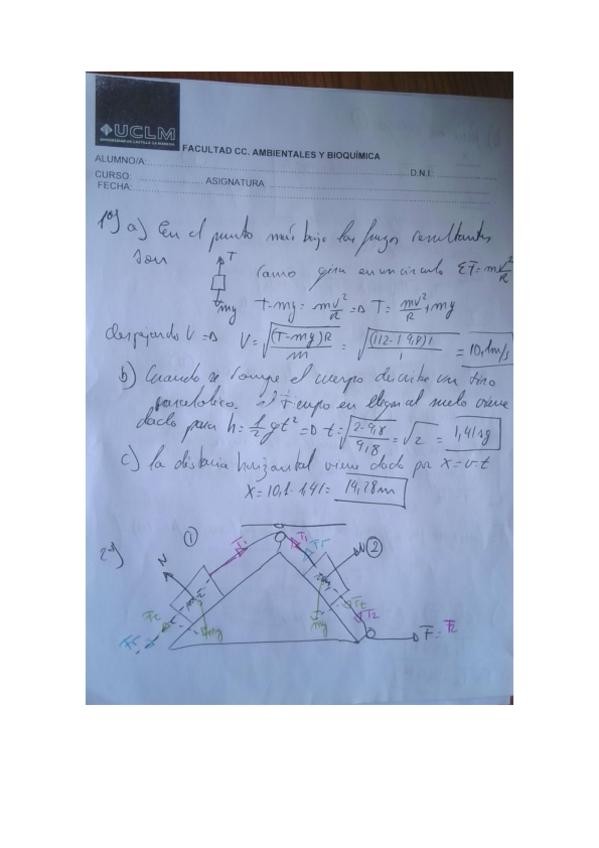 UCLM
UNIVERSIDAD DE CASTILLA-LA MANCHA
FACULTAD CC. AMBIENTALES Y BIOQUÍMICA
ALUMNO/A: D.N.I.:
CURSO: ASIGNATURA
FECHA:
1º) a) En el punto más bajo las fuerzas resultantes
son
T
como gira en un círculo ΣF = m v²/R
mg
T-mg = mv²/R => T = mv²/R + mg
despejando V => V = √((T-mg)R/m) = √((112-1·9,8)1/1) = 10,1m/s
b) Cuando se rompe el cuerpo describe un tiro
parabólico. el tiempo en llegar al suelo viene
dado para h = 1/2 gt² => t = √(2·9,8/9,8) = √2 = 1,41sg
c) la distancia horizontal viene dado por x = v·t
X = 10,1·1,41 = 14,28m
2º)
① T1 T1 Fr N ②
N
Ft mg mg Ft T2
Fr F = T2